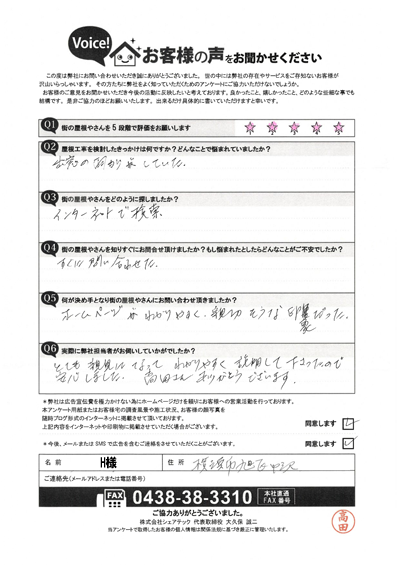 Voice!
お客様の声をお聞かせください
この度は弊社にお問い合わせいただき誠にありがとうございました。世の中には弊社の存在やサービスをご存知ないお客様が
沢山いらっしゃいます。その方たちに弊社をよく知っていただくためのアンケートにご協力いただけないでしょうか。
お客様のご意見をお聞かせいただき今後の活動に反映したいと考えております。良かったこと、嬉しかったこと、どのような些細な事でも
結構です。是非ご協力のほどお願いいたします。出来るだけ具体的に書いていただけますと幸いです。
Q1 街の屋根やさんを5段階で評価をお願いします
Q2 屋根工事を検討したきっかけは何ですか?どんなことで悩まれていましたか?
していた。
Q3 街の屋根やさんをどのように探しましたか?
インターネットで検索
Q4 街の屋根やさんを知りすぐにお問合せ頂けましたか?もし悩まれたとしたらどんなことがご不安でしたか?
すぐに問い合わせた。
Q5 何が決め手となり街の屋根やさんにお問い合わせ頂きましたか?
ホームページがわかりやすく、親切そうな印象だった。
Q6 実際に弊社担当者がお伺いしていかがでしたか?
とても親身になって わかりやすく説明して下さったので
安心しました。高田さんありがとうございます。
＊弊社は広告宣伝費を極力かけない為にホームページだけを頼りにお客様への営業活動を行っております。
本アンケート用紙またはお客様宅の調査風景や施工状況、お客様の顔写真を
随時ブログ形式のインターネットに掲載させて頂いております。
上記内容をインターネットや印刷物に掲載させていただく場合がございます。 同意します
＊今後、メールまたは SMS で広告を含むご連絡をさせていただくことがございます。 同意します
名前 H様 住所 横浜市旭区中沢
ご連絡先(メールアドレスまたは電話番号)
FAX 番号 0438-38-3310 本社直通 FAX 番号
ご協力ありがとうございました。
株式会社シェアテック 代表取締役 大久保 誠二
当アンケートで取得したお客様の個人情報は関係法規に基づき厳正に管理いたします。
高田